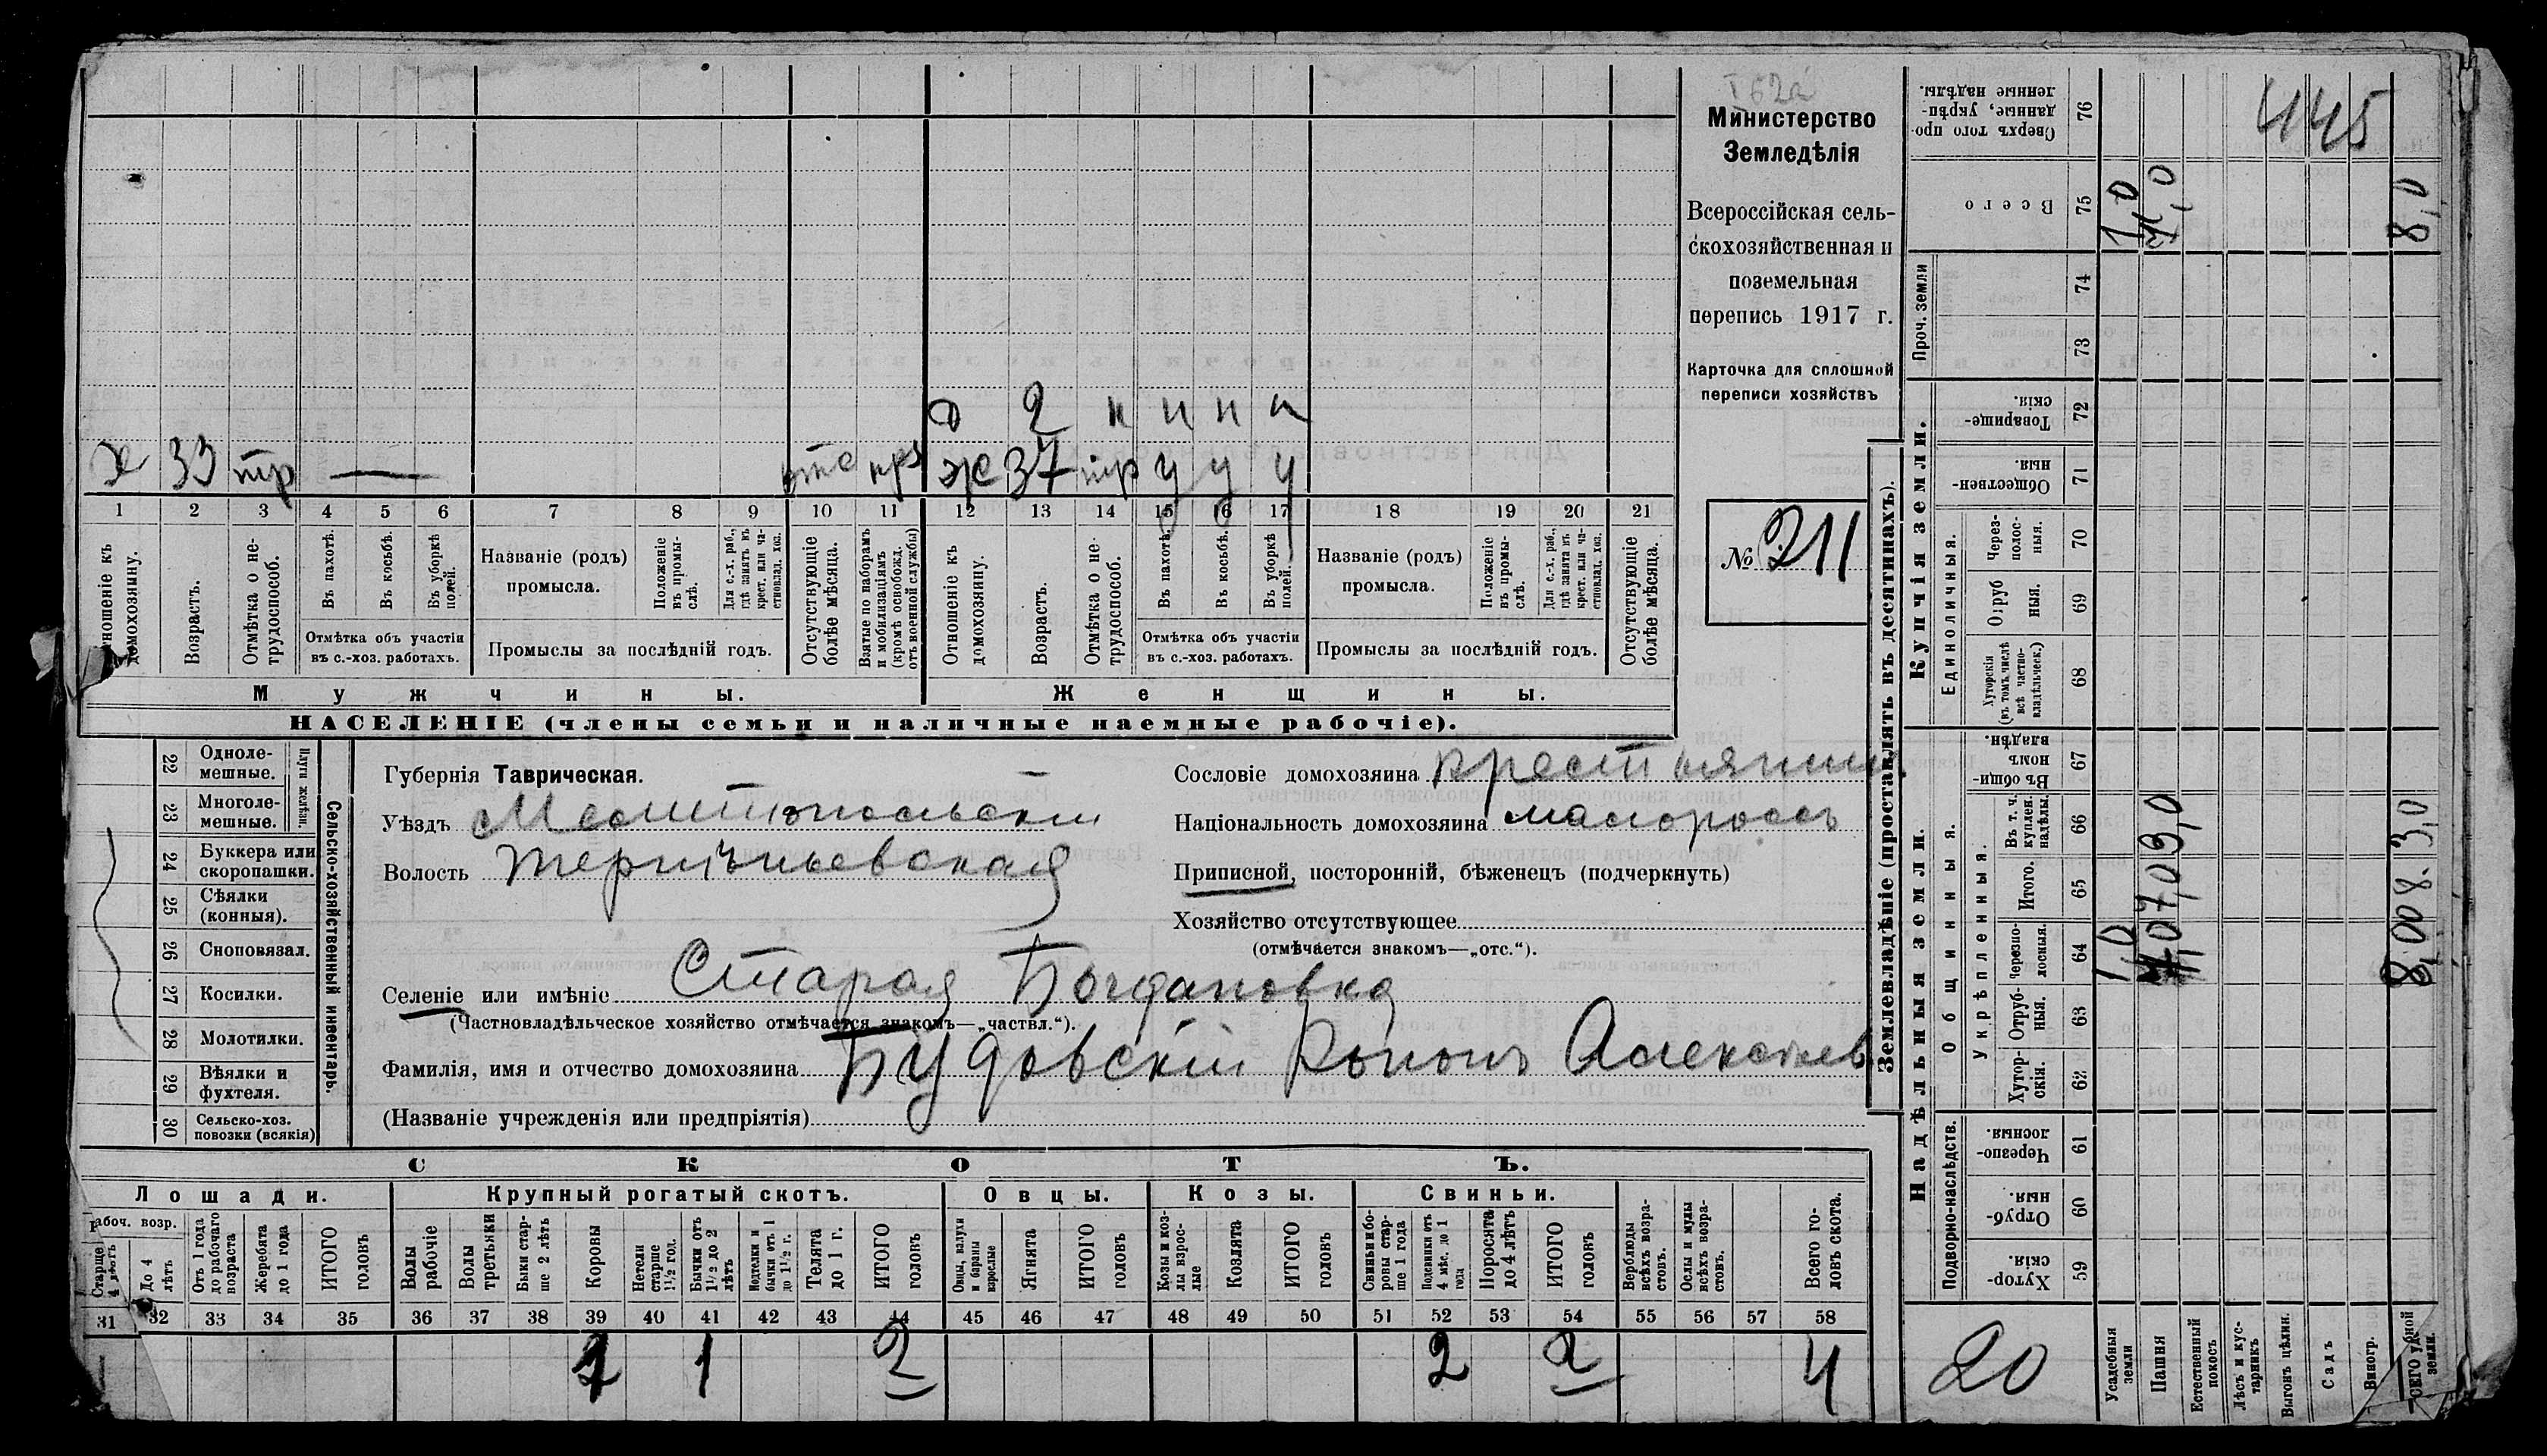 Министерство
Земледѣлія
Всероссійская сель-
скохозяйственная и
поземельная
перепись 1917 г.
Карточка для сплошной
переписи хозяйствъ
№ 211
445
д 2 н н н н
х 33 тр — отс ж 37 тр у у у
1 2 3 4 5 6 7 8 9 10 11 12 13 14 15 16 17 18 19 20 21
Отношеніе къ домохозяину.
Возрастъ.
Отмѣтка о не-трудоспособ.
Въ пахотѣ.
Въ косьбѣ.
Въ уборкѣ полей.
Отмѣтка объ участіи
въ с.-хоз. работахъ.
Названіе (родъ)
промысла.
Положеніе въ промы-слѣ.
Для с.-х. раб., гдѣ занятъ въ крест. или ча-стновлад. хоз.
Промыслы за послѣдній годъ.
Отсутствующіе болѣе мѣсяца.
Взятые по наборамъ и мобилизаціямъ (кромѣ освобожд. отъ военной службы)
Отношеніе къ домохозяину.
Возрастъ.
Отмѣтка о не-трудоспособ.
Въ пахотѣ.
Въ косьбѣ.
Въ уборкѣ полей.
Отмѣтка объ участіи
въ с.-хоз. работахъ.
Названіе (родъ)
промысла.
Положеніе въ промы-слѣ.
Для с.-х. раб., гдѣ занята въ крест. или ча-стновлад. хоз.
Промыслы за послѣдній годъ.
Отсутствующіе болѣе мѣсяца.
Мужчины. Женщины.
НАСЕЛЕНІЕ (члены семьи и наличные наемные рабочіе).
Сельско-хозяйственный инвентарь.
Плуги желѣзн.
22 Одноле-мешные.
23 Многоле-мешные.
24 Буккера или скоропашки.
25 Сѣялки (конныя).
26 Сноповязал.
27 Косилки.
28 Молотилки.
29 Вѣялки и фухтеля.
30 Сельско-хоз. повозки (всякія)
Губернія Таврическая.
Уѣздъ Мелитопольскій
Волость Терпѣньевская
Сословіе домохозяина крестьянин
Національность домохозяина малороссъ
Приписной, посторонній, бѣженецъ (подчеркнуть)
Хозяйство отсутствующее
(отмѣчается знакомъ—„отс.“).
Селеніе или имѣніе Старая Богдановка
(Частновладѣльческое хозяйство отмѣчается знакомъ—„частвл.“).
Фамилія, имя и отчество домохозяина Будовскій Кононъ Алексѣев
(Названіе учрежденія или предпріятія)
СКОТЪ.
Лошади. Крупный рогатый скотъ. Овцы. Козы. Свиньи.
Рабоч. возр.
Старше 4 лѣтъ
До 4 лѣтъ
Отъ 1 года до рабочаго возраста
Жеребята до 1 года
ИТОГО головъ
Волы рабочіе
Волы третьяки
Быки стар-ше 2 лѣтъ
Коровы
Нетели старше 1½ год.
Бычки отъ 1½ до 2 лѣтъ
Нетелки и бычки отъ 1 до 1½ г.
Телята до 1 г.
ИТОГО головъ
Овцы, валухи и бараны взрослые
Ягнята
ИТОГО головъ
Козы и коз-лы взрос-лые
Козлята
ИТОГО головъ
Свиньи и бо-ровы стар-ше 1 года
Подсвинки отъ 4 мѣс. до 1 года
Поросята до 4 лѣтъ
ИТОГО головъ
Верблюды всѣхъ возра-стовъ.
Ослы и мулы всѣхъ возра-стовъ.
Всего го-ловъ скота.
31 32 33 34 35 36 37 38 39 40 41 42 43 44 45 46 47 48 49 50 51 52 53 54 55 56 57 58
1 1 2 2 2 4
Землевладѣніе (проставлять въ десятинахъ).
Купчія земли.
Надѣльныя земли.
Сверхъ того про-данные, укрѣп-ленные надѣлы. 76
Всего 75 1,0 8,0
Проч. земли 74
73
Товарище-скія. 72
Обществен-ныя. 71
Единоличныя.
Через-полос-ныя. 70
Отруб-ныя. 69
Хуторскія (въ томъ числѣ всѣ частно-владѣльческ.) 68
Общинныя.
Въ общин-номъ владѣн. 67
Укрѣпленныя.
Въ т. ч. куплен. надѣлы. 66 3,0 3,0
Итого. 65 7,0 8,0
Черезпо-лосныя. 64 1,0 8,0
Отруб-ныя. 63
Хутор-скія. 62
Подворно-наслѣдств.
Черезпо-лосныя. 61
Отруб-ныя. 60
Хутор-скія. 59
20
Усадебныя земли
Пашня
Естественный покосъ
Лѣсъ и кус-тарникъ
Выгонъ цѣлин.
Садъ
Виногр.
земли.